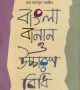 বাংলা
বানান ও
উচ্চারণ
বিধি